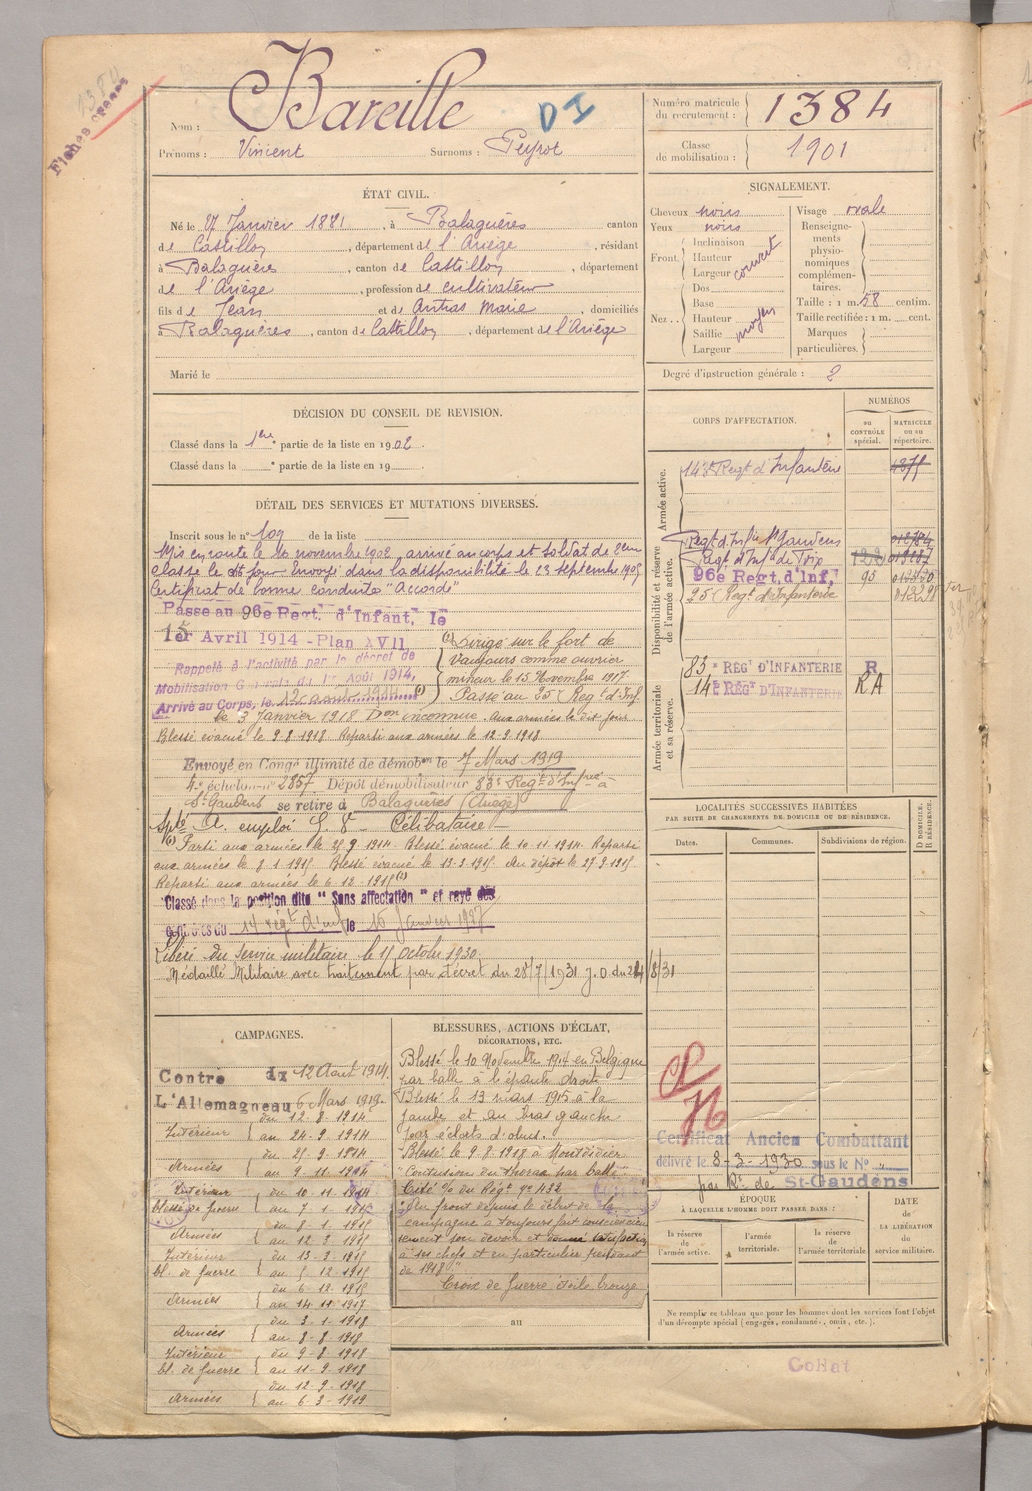 1384
Fiches
Nom : Bareille
D I
Prénoms : Vincent Surnoms : Peyrot
Numéro matricule du recrutement : 1384
Classe de mobilisation : 1901
ÉTAT CIVIL.
Né le 27 Janvier 1881, à Balaguères canton
de Castillon, département de l'Ariège, résidant
à Balaguères, canton de Castillon, département
de l'Ariège, profession de cultivateur
fils de Jean et de Antras Marie, domiciliés
à Balaguères, canton de Castillon, département de l'Ariège
Marié le
SIGNALEMENT.
Cheveux noirs
Yeux noirs
Front. Inclinaison
Hauteur
Largeur couvert
Nez.. Dos
Base
Hauteur
Saillie moyen
Largeur
Visage ovale
Renseignements physionomiques complémentaires.
Taille : 1 m. 58 centim.
Taille rectifiée : 1 m. cent.
Marques particulières.
Degré d'instruction générale : 2
DÉCISION DU CONSEIL DE REVISION.
Classé dans la 1ere partie de la liste en 1902.
Classé dans la e partie de la liste en 19
CORPS D'AFFECTATION.
NUMÉROS
au CONTRÔLE spécial.
MATRICULE ou au répertoire.
Armée active.
143e Regt d'Infanterie 4375
Disponibilité et réserve de l'armée active.
Regt d'Infie St Gaudens
Regt d'Infie de Foix
96e Regt. d'Inf. 95
25e Regt d'Infanterie
Armée territoriale et sa réserve.
83e RÉGt D'INFANTERIE R
14e RÉGt D'INFANTERIE RA
DÉTAIL DES SERVICES ET MUTATIONS DIVERSES.
Inscrit sous le n° 109 de la liste
Mis en route le 16 novembre 1902, arrivé au corps et soldat de 2eme
classe le dit jour Envoyé dans la disponibilité le 23 septembre 1905
Certificat de bonne conduite "Accordé"
Passe au 96e Regt. d'Infant. le
1er Avril 1914 - Plan XVII
Rappelé à l'activité par le décret de
Mobilisation Générale du 1er Août 1914,
Arrivé au Corps, le 12 août 1914 (1)
(2) Dirigé sur le fort de
Vaujours comme ouvrier
mineur le 15 Novembre 1917.
Passé au 25e Reg. d'Inf
le 3 Janvier 1918 Don inconnue. Aux armées le dit jour
Blessé évacué le 9-8-1918 Reparti aux armées le 12-9-1918
Envoyé en Congé illimité de démobon le 7 Mars 1919
4e échelon n° 2857. Dépôt démobilisateur 83e Regt d'Infie à
St Gaudens se retire à Balaguères (Ariège)
Spté A. emploi S. V - Célibataire -
(1) Parti aux armées le 25 9 1914. Blessé évacué le 10-11-1914. Reparti
aux armées le 8-1-1915 Blessé évacué le 13-3-1915. Au dépôt le 27-9-1915
Reparti aux armées le 6-12-1915 (2)
Classé dans la position dite "Sans affectation" et rayé des
contrôles du 14e régt d'inf le 15 Janvier 1927
Libéré du service militaire le 15 Octobre 1930
Médaillé Militaire avec traitement par décret du 28/7/1931 J.O. du 24/8/31
LOCALITÉS SUCCESSIVES HABITÉES
PAR SUITE DE CHANGEMENTS DE DOMICILE OU DE RÉSIDENCE.
D DOMICILE. R RÉSIDENCE.
Dates.
Communes.
Subdivisions de région.
CAMPAGNES.
Contre du 12 Août 1914.
L'Allemagne au 6 Mars 1919.
Intérieur { du 12-8-1914
au 24-9-1914
Armées { du 25-9-1914
au 9-11-1914
Intérieur { du 10-11-1914
blessé de guerre au 7-1-1915
Armées { du 8-1-1915
au 12 3 1915
Intérieur { du 13-3-1915
bl. de guerre au 5-12-1915
Armées { du 6-12-1915
au 14-11-1917
Armées { du 3-1-1918
au 8-8-1918
Intérieur { du 9-8-1918
bl. de guerre au 11-9-1918
Armées { du 12-9-1918
au 6-3-1919
BLESSURES, ACTIONS D'ÉCLAT,
DÉCORATIONS, ETC.
Blessé le 10 Novembre 1914 en Belgique
par balle à l'épaule droite.
Blessé le 13 mars 1915 à la
jambe et au bras gauche
par éclats d'obus.
Blessé le 9-8-1918 à Montdidier
"Contusion du thorax par balle"
Cité % du Régt n° 432
"Au front depuis le début de la
campagne a toujours fait conscien-
sement son devoir et donné satisfaction
à ses chefs et en particulier pendant
de 1918."
Croix de Guerre étoile bronze
au
Certificat Ancien Combattant
délivré le 8-3-1930 sous le N° "
par Rt de St-Gaudens
ÉPOQUE
À LAQUELLE L'HOMME DOIT PASSER DANS :
la réserve de l'armée active.
l'armée territoriale.
la réserve de l'armée territoriale.
DATE de LA LIBÉRATION du service militaire.
Ne remplir ce tableau que pour les hommes dont les services font l'objet
d'un décompte spécial (engagés, condamnés, omis, etc.).
Collat